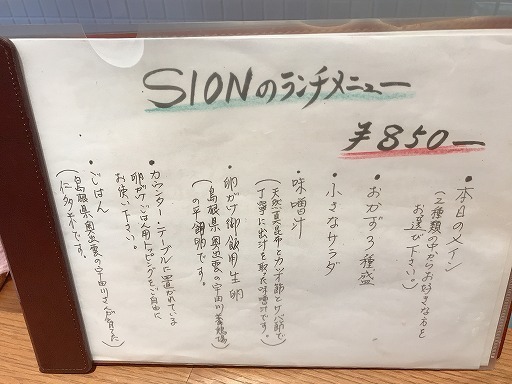 SIONのランチメニュー
¥850ー
・本日のメイン
(2種類の中からお好きな方を
お選び下さい。)
・おかず3種盛
・小さなサラダ
・味噌汁
(天然真昆布とカツオ節とサバ節で
丁寧に出汁を取った味噌汁です。)
・卵かけ御飯用生卵
(島根県奥出雲の宇田川養鶏場
の平飼卵です。)
・カウンター・テーブルに置かれている
卵かけごはん用トッピングをご自由に
お使い下さい。
・ごはん
(島根県奥出雲の宇田川さんが育てた
仁多米です。)